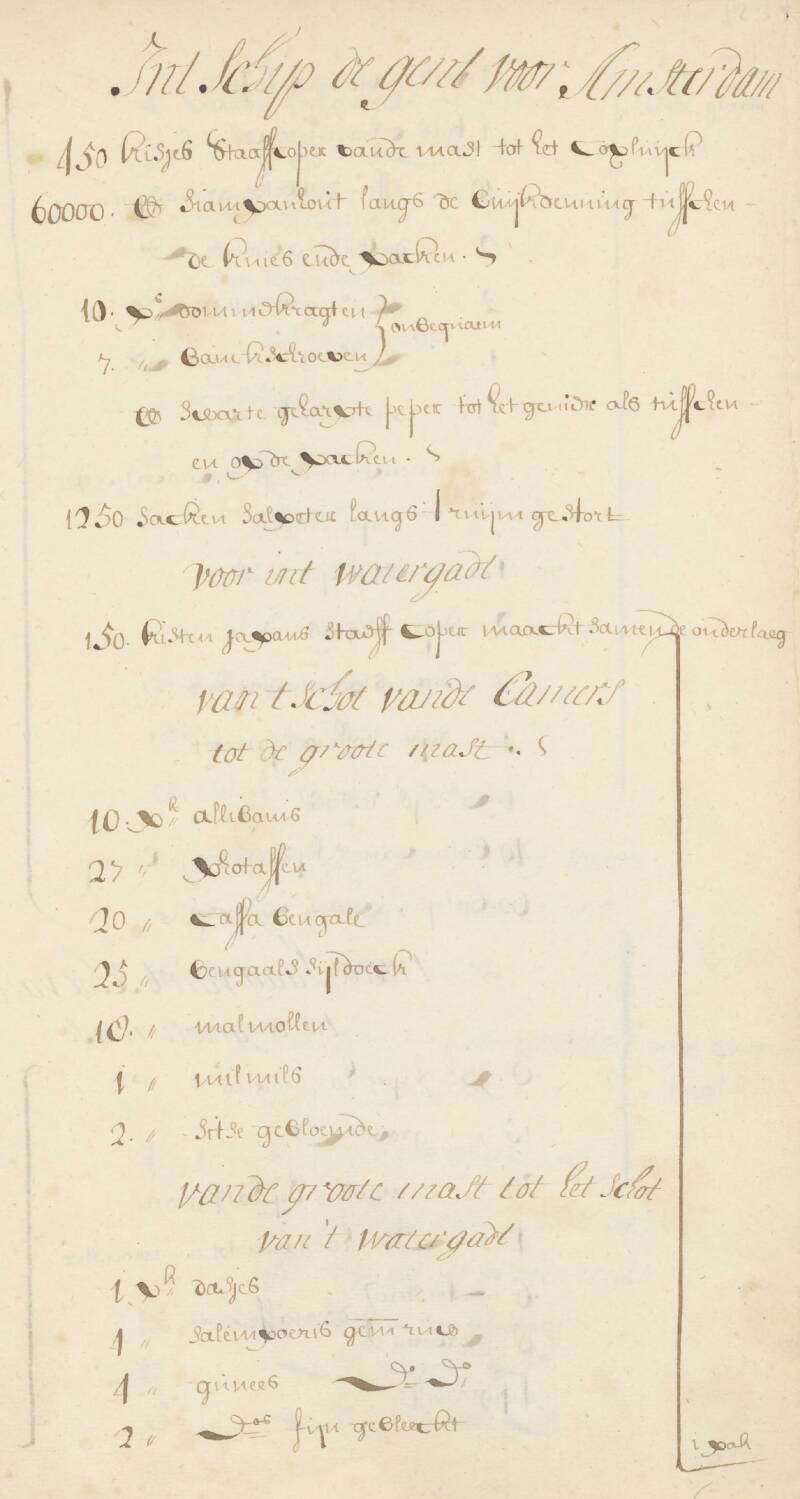 Int Schip de gent voor Amsterdam
450 kisjes Staaff coper vande mast tot het
60000. lb siampanhout langs de buijkdenning tusschen
de knies ende packen.
10. ps dommekragten
onbequaem
7. " banckschroeven
lb swarte geharpte peper tot het geuide als tusschen
en op de packen.
1250 sacken salpeter langs t ruijm gestort
voor int watergadt
150. kisten japans staaff coper maackt samen de onderlaeg
van t schot vande Camers
tot de groote mast.
10. pk allibanis
27 " photassen
20 " Cassa bengale
25 " bengaals sijldoeck
10. " malmollen
1 " milmils
2. " sitse gebloemde
vande groote mast tot het schot
van 't watergadt
1 pk dasjes
4 " salempoeris gem
4 " ginees do do
2 " dos fijn gebleeckt
1 pak